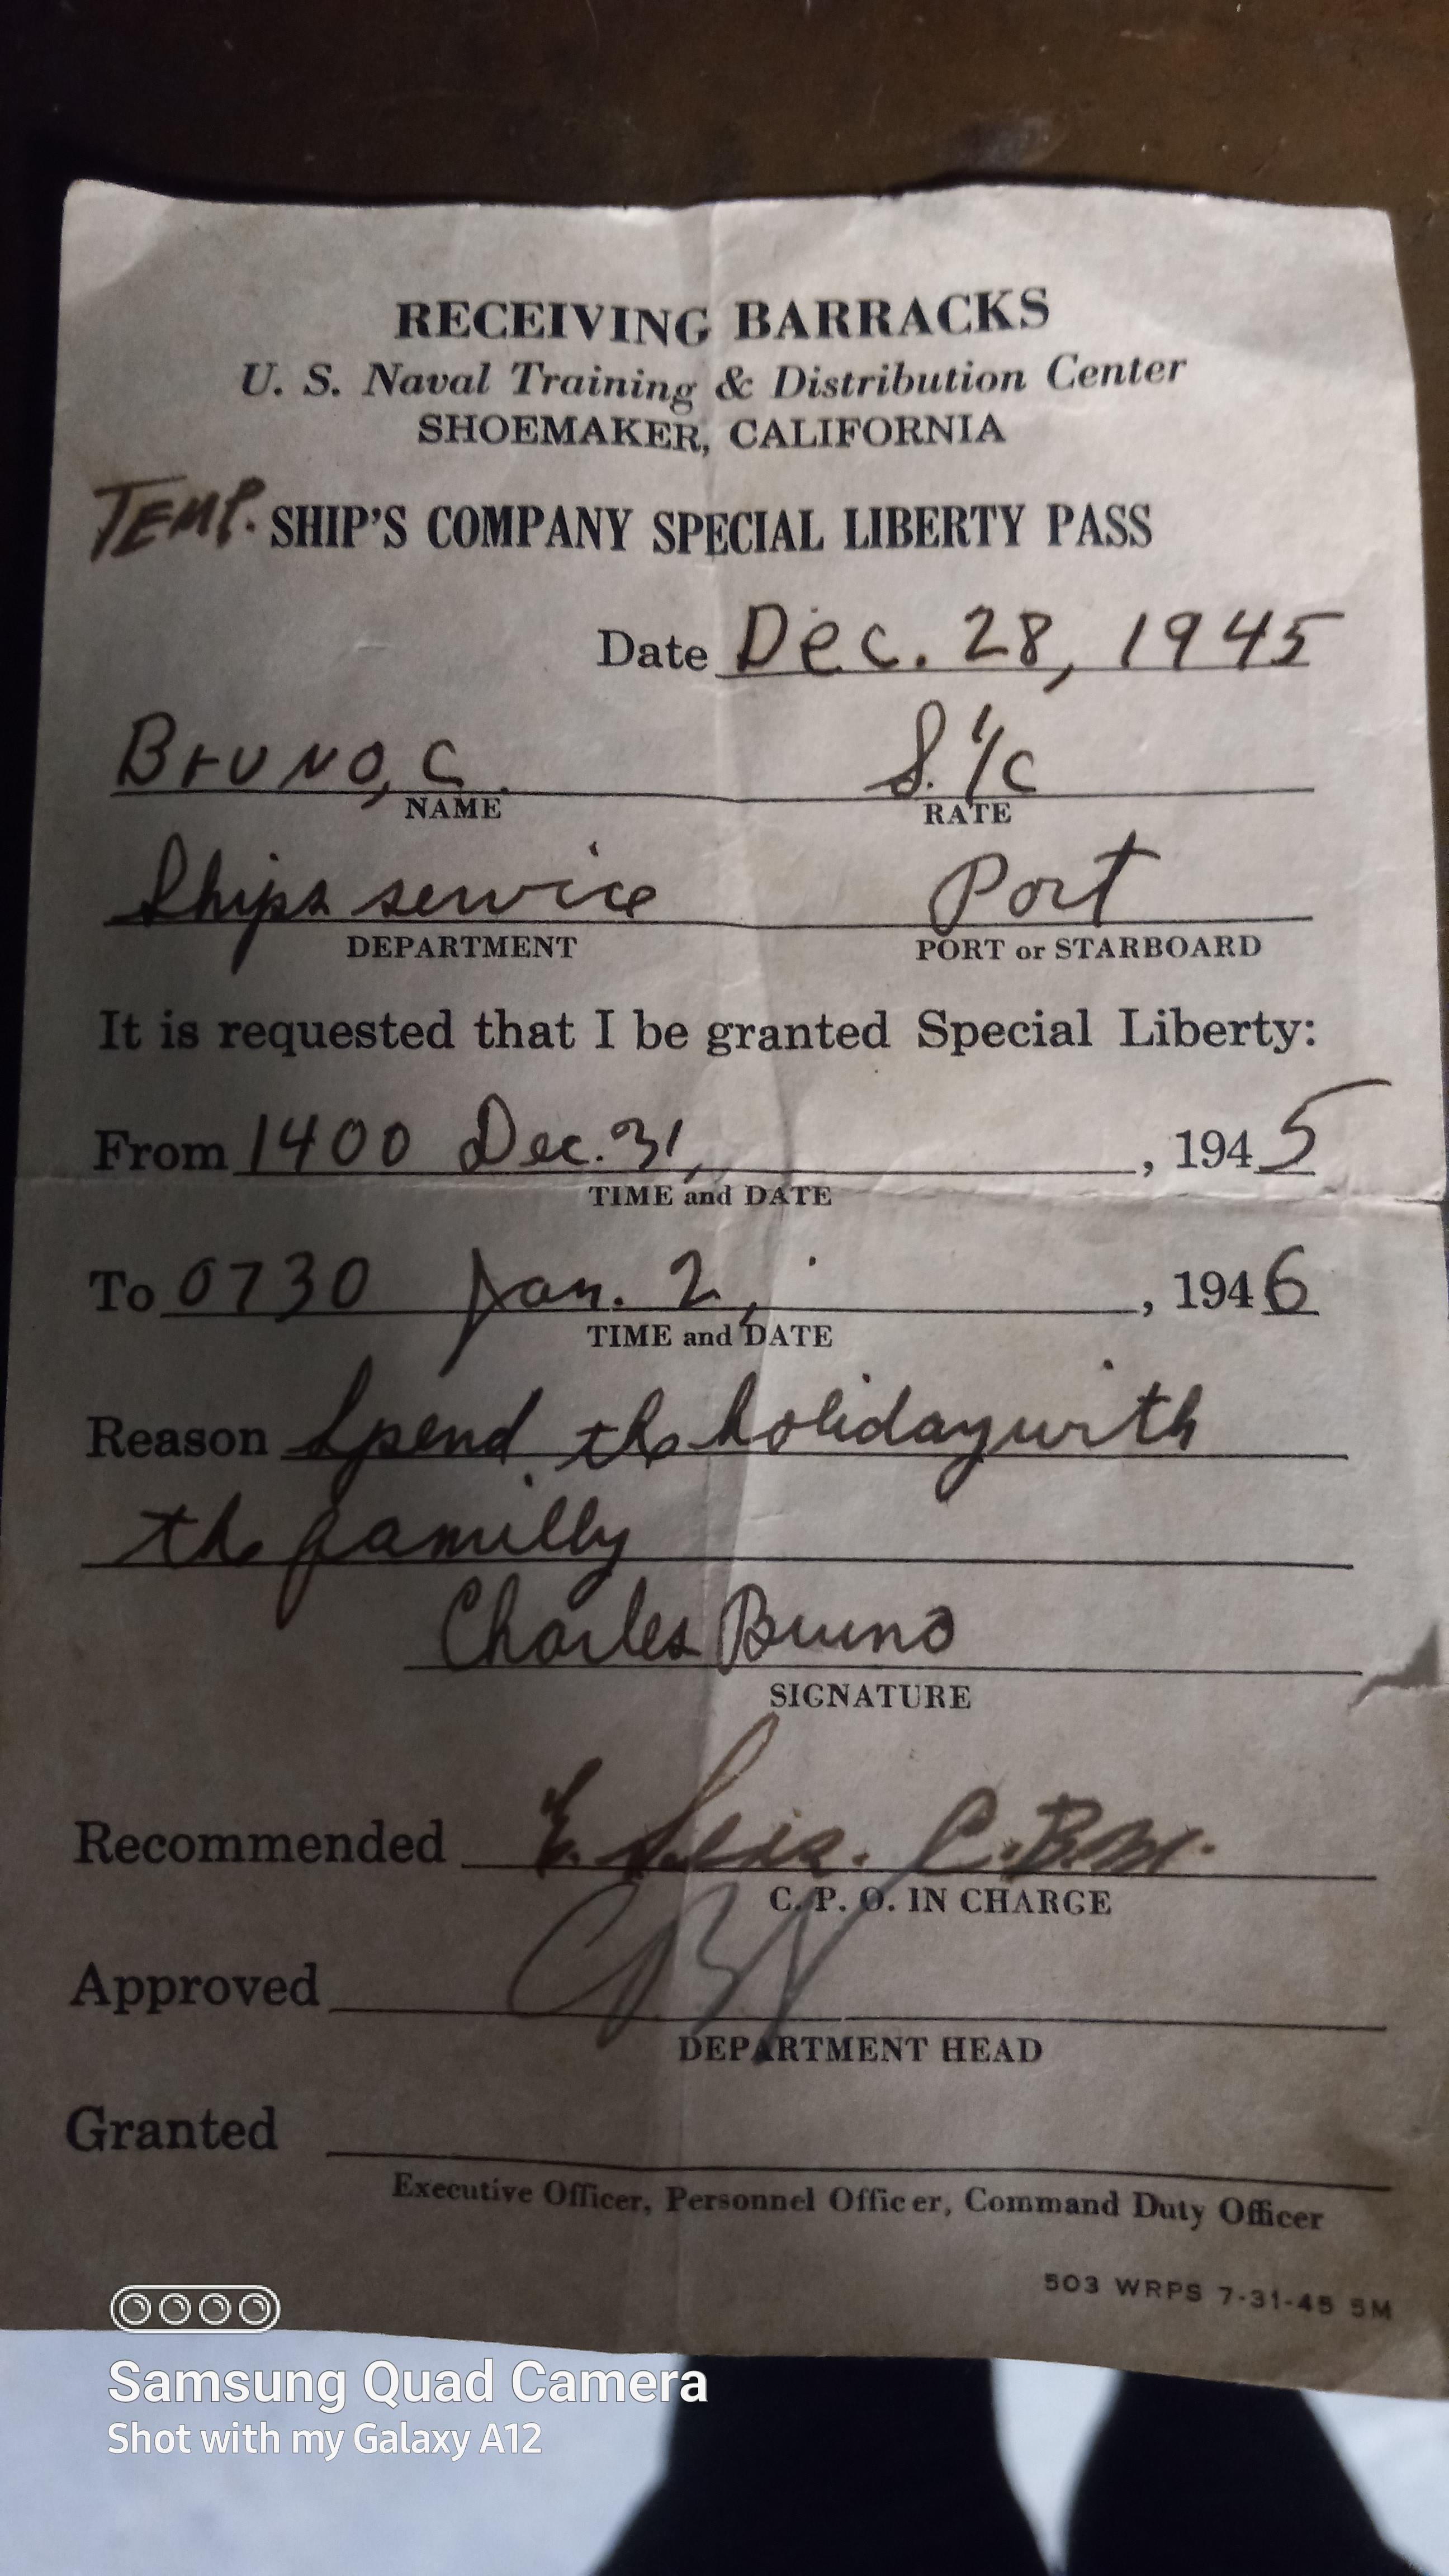 RECEIVING BARRACKS
U. S. Naval Training & Distribution Center
SHOEMAKER, CALIFORNIA
TEMP. SHIP'S COMPANY SPECIAL LIBERTY PASS
Date Dec. 28, 1945
Bruno, C. S. 1/c
NAME RATE
Ships service Port
DEPARTMENT PORT or STARBOARD
It is requested that I be granted Special Liberty:
From 1400 Dec. 31, , 1945
TIME and DATE
To 0730 Jan. 2, , 1946
TIME and DATE
Reason Spend the holiday with
the familly
Charles Bruno
SIGNATURE
Recommended E. C.B.M.
C. P. O. IN CHARGE
Approved
DEPARTMENT HEAD
Granted
Executive Officer, Personnel Officer, Command Duty Officer
503 WRPS 7-31-45 5M
Samsung Quad Camera
Shot with my Galaxy A12